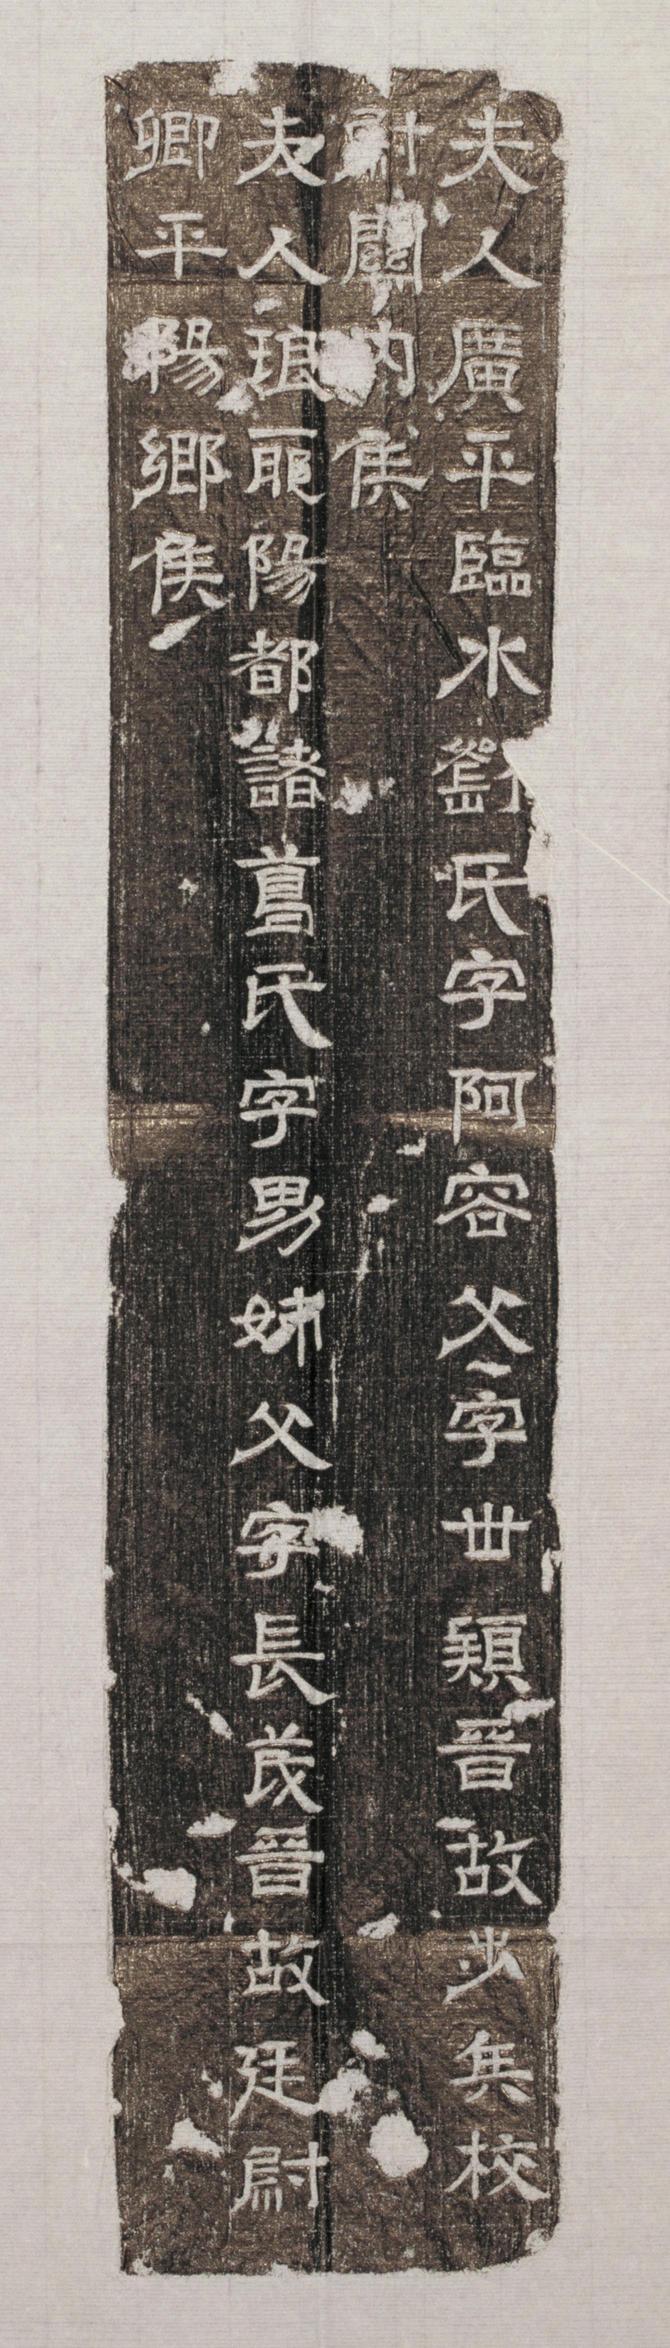 夫人廣平臨水劉氏字阿容父字世穎晉故步兵校
尉關內侯
夫人琅耶陽都諸葛氏字男姊父字長茂晉故廷尉
卿平陽鄉侯